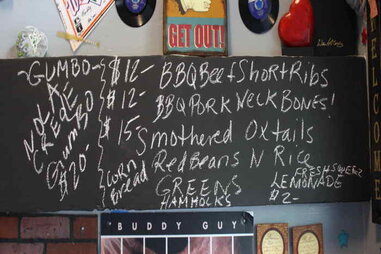 GET OUT!
-GUMBO-
NOLAE
CREOLE
GUMBO
@$20
$12- BBQ Beef Short Ribs
$12- BBQ PORK NECK BONES!
$15- Smothered Oxtails
Red Beans N Rice
(Corn
bread)
GREENS
HAMHOCKS
FRESH SQUEEZ
LEMONADE
$2-
BUDDY GUY
WELCOME